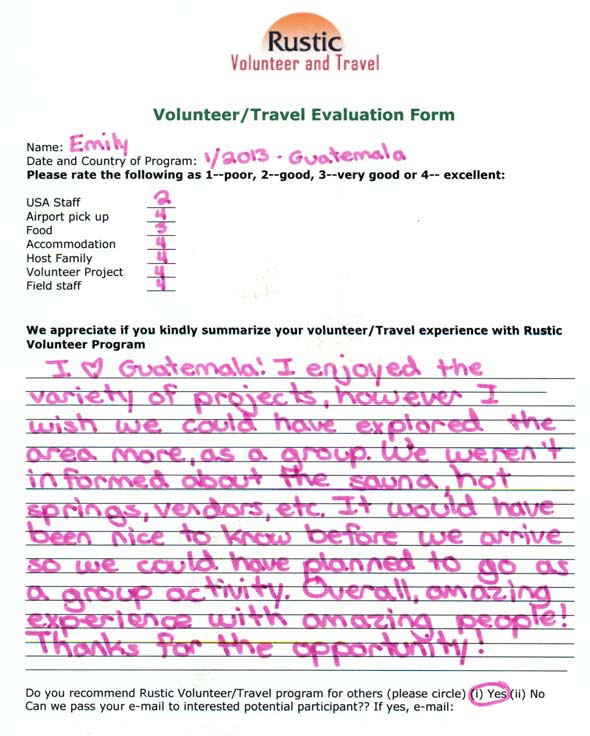 Rustic
Volunteer and Travel
Volunteer/Travel Evaluation Form
Name: Emily
Date and Country of Program: 1/2013 - Guatemala
Please rate the following as 1--poor, 2--good, 3--very good or 4-- excellent:
USA Staff 2
Airport pick up 4
Food 3
Accommodation 4
Host Family 4
Volunteer Project 4
Field staff 4
We appreciate if you kindly summarize your volunteer/Travel experience with Rustic
Volunteer Program
I ♡ Guatemala! I enjoyed the
variety of projects, however I
wish we could have explored the
area more, as a group. We weren't
informed about the sauna, hot
springs, vendors, etc. It would have
been nice to know before we arrive
so we could have planned to go as
a group activity. Overall, amazing
experience with amazing people!
Thanks for the opportunity!
Do you recommend Rustic Volunteer/Travel program for others (please circle) (i) Yes (ii) No
Can we pass your e-mail to interested potential participant?? If yes, e-mail: